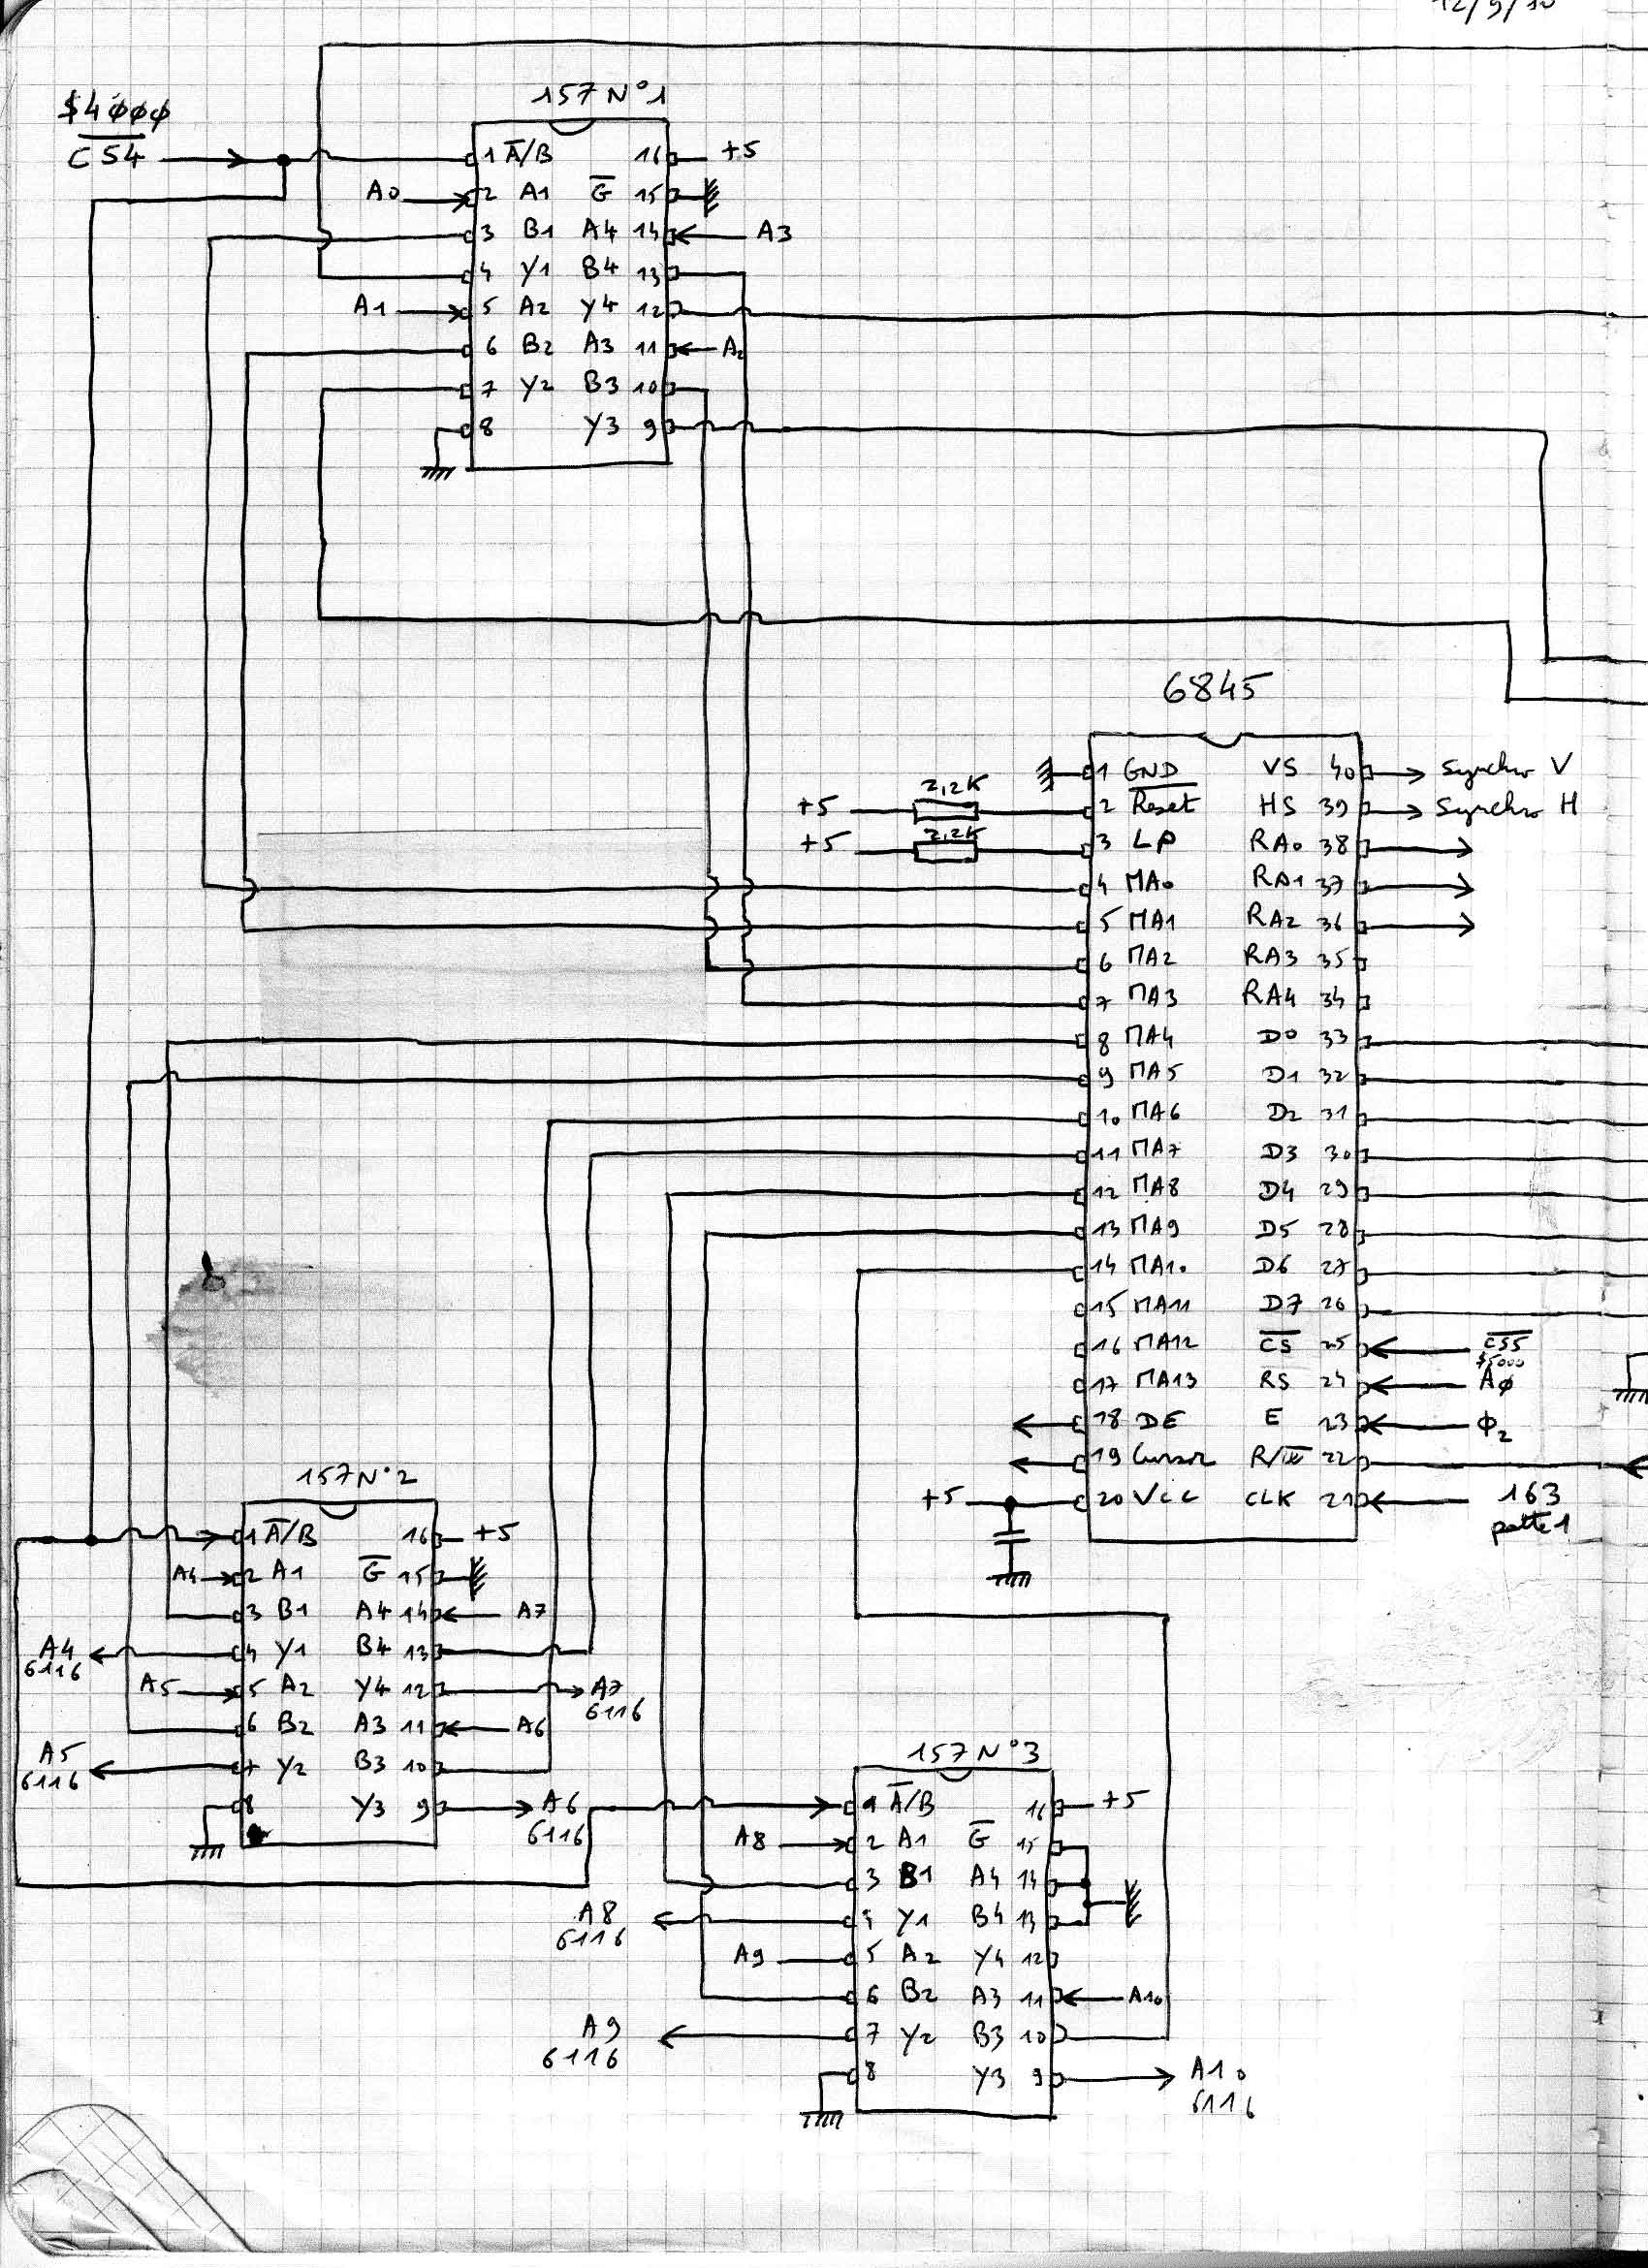 12/9/10
157 N°1
$4ØØØ
CS4
1 A/B 16 +5
A0 2 A1 G 15
3 B1 A4 14 A3
4 Y1 B4 13
A1 5 A2 Y4 12
6 B2 A3 11 A2
7 Y2 B3 10
8 Y3 9
6845
1 GND VS 40 Synchro V
+5 2,2K 2 Reset HS 39 Synchro H
+5 2,2K 3 LP RA0 38
4 MA0 RA1 37
5 MA1 RA2 36
6 MA2 RA3 35
7 MA3 RA4 34
8 MA4 D0 33
9 MA5 D1 32
10 MA6 D2 31
11 MA7 D3 30
12 MA8 D4 29
13 MA9 D5 28
14 MA10 D6 27
15 MA11 D7 26
16 MA12 CS 25 CS5
$5000
17 MA13 RS 24 AØ
18 DE E 23 Φ2
19 Cursor R/W 22
+5 20 VCC CLK 21 163
patte 1
157 N°2
1 A/B 16 +5
A4 2 A1 G 15
3 B1 A4 14 A7
A4 6116 4 Y1 B4 13
A5 5 A2 Y4 12 A7 6116
6 B2 A3 11 A6
A5 6116 7 Y2 B3 10
8 Y3 9 A6 6116
157 N°3
1 A/B 16 +5
A8 2 A1 G 15
3 B1 A4 14
A8 6116 4 Y1 B4 13
A9 5 A2 Y4 12
6 B2 A3 11 A10
A9 6116 7 Y2 B3 10
8 Y3 9 A10 6116